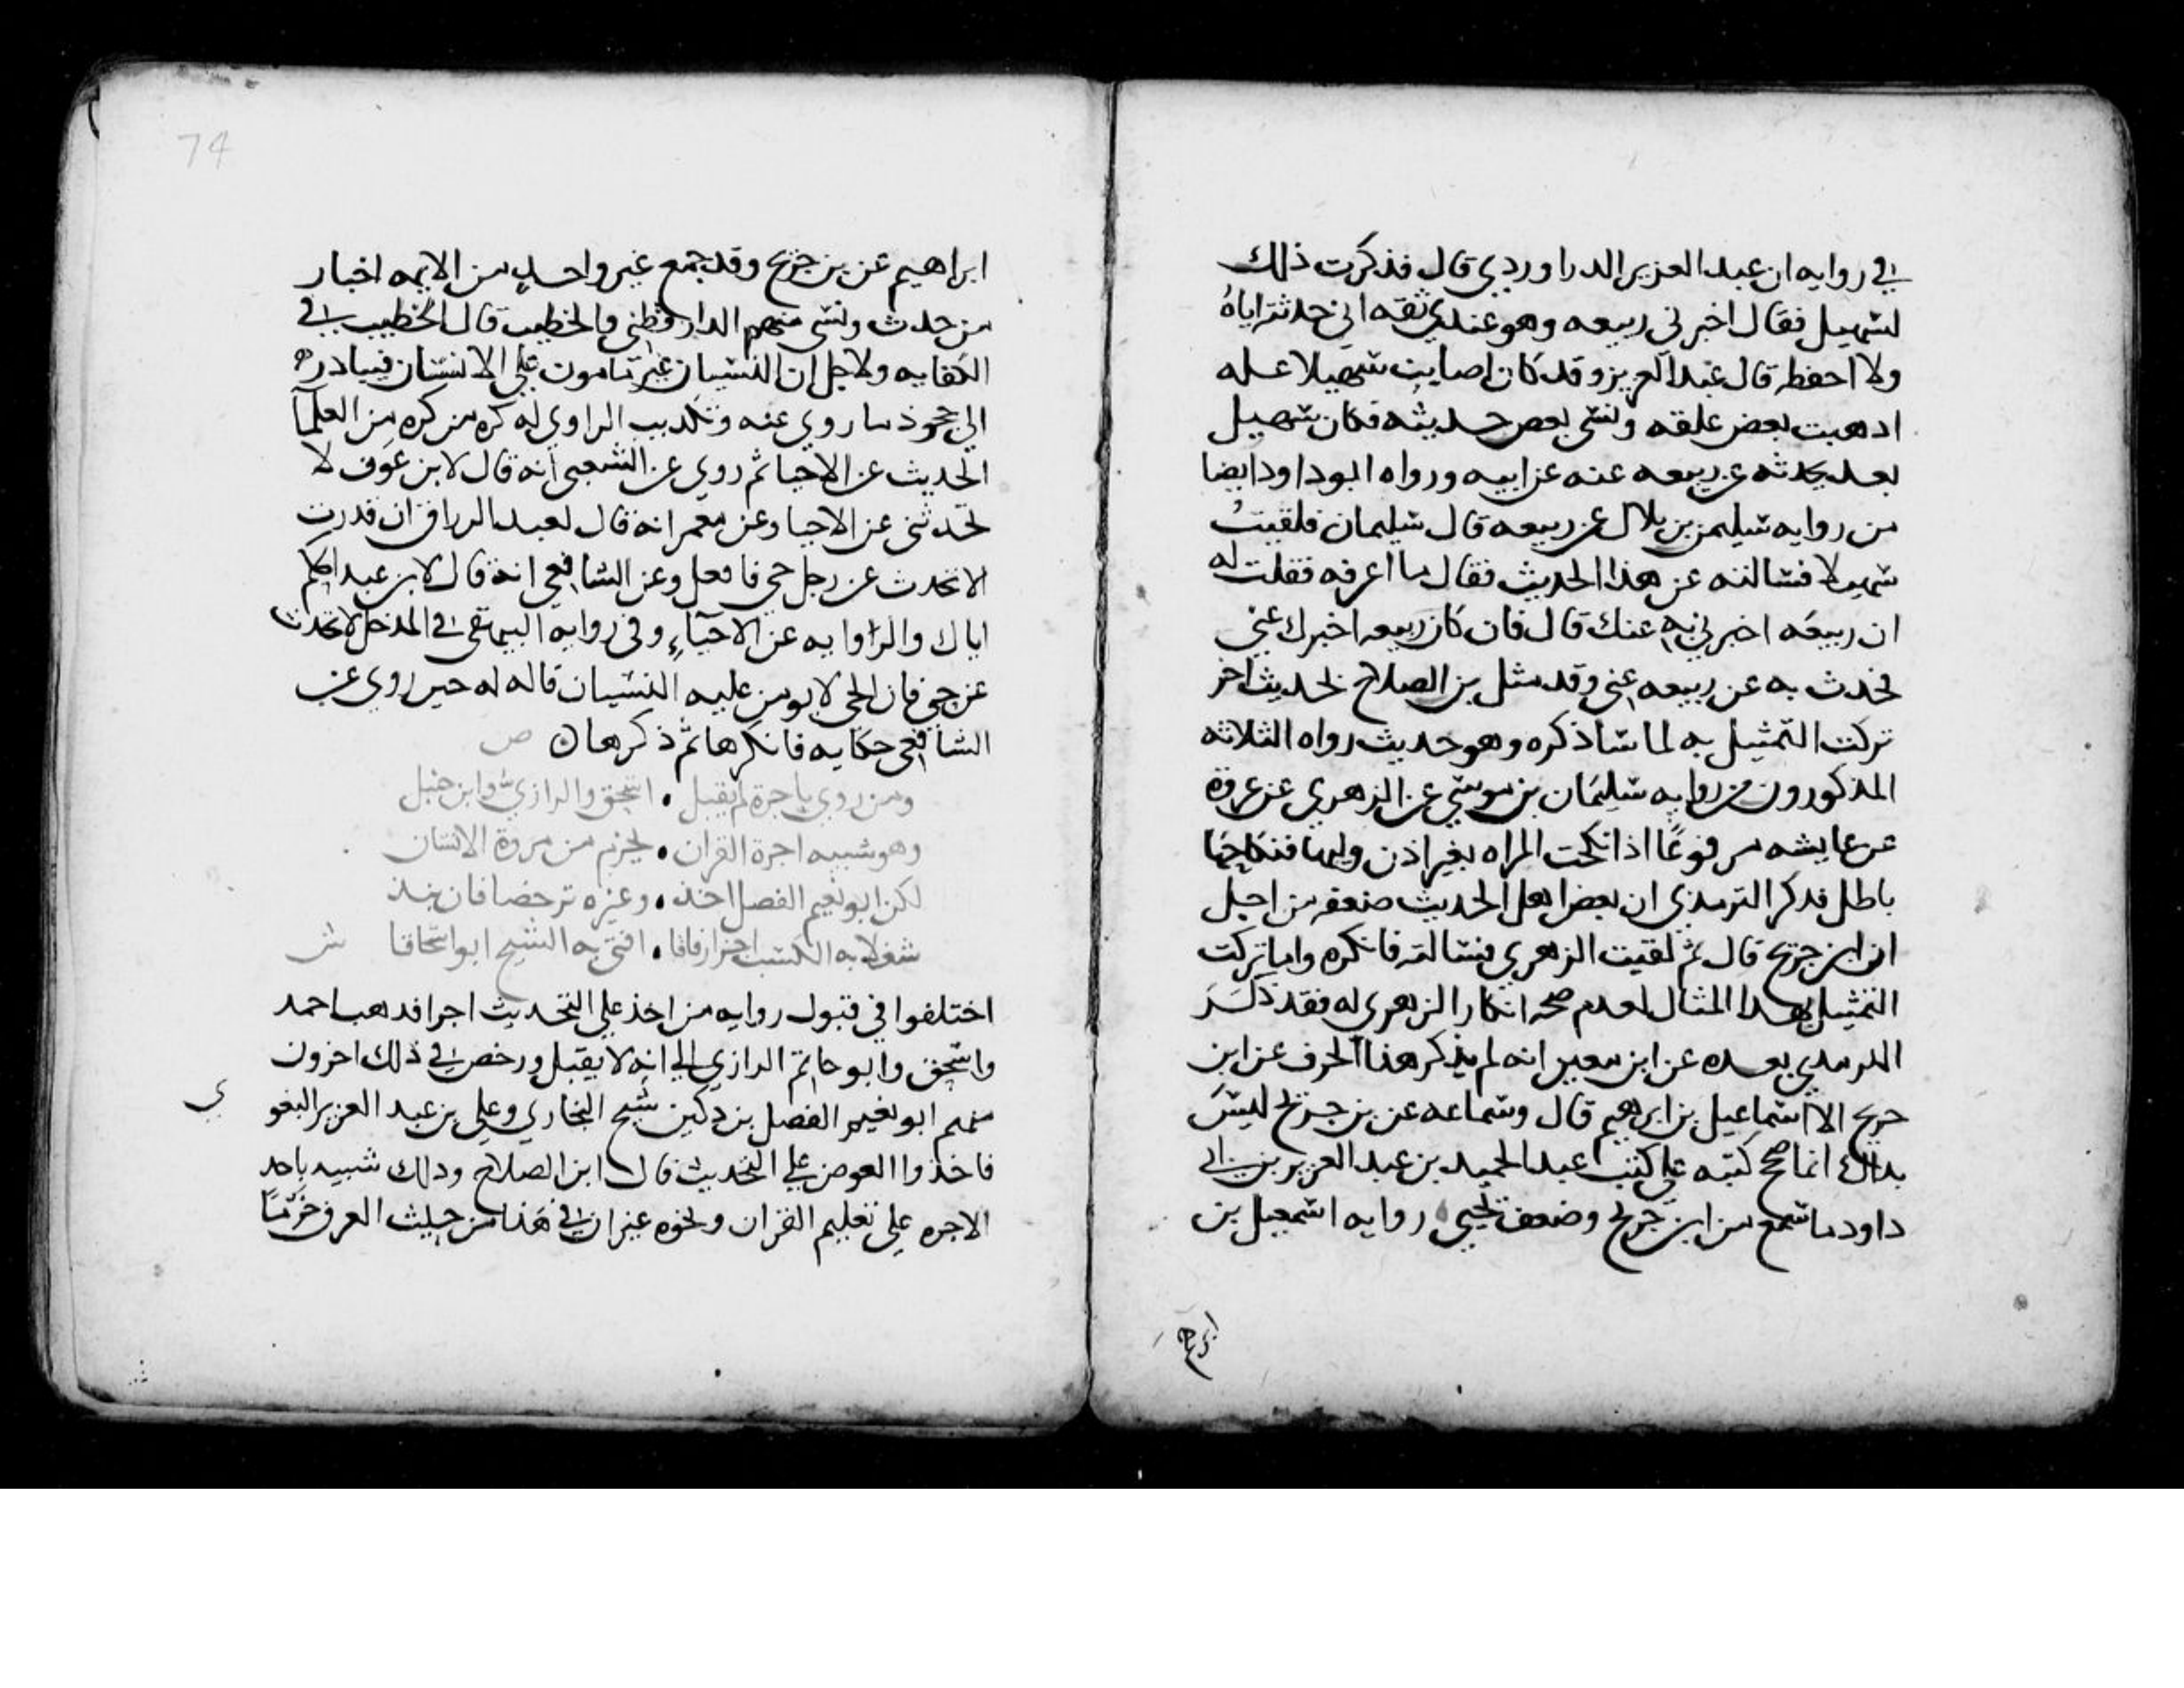 في روايه ان عبد العزيز الدراوردي قال فذكرت ذلك
لسهيل فقال اخبرني ربيعه وهو عندي ثقه اني حدثته اياهُ
ولا احفظه قال عبد العزيز وقد كان اصابت سهيلا عله
اذهبت بعض عقله ونسي بعض حديثه فكان سهيل
بعد يحدثه عن ربيعه عنه عن ابيه ورواه ابو داود ايضا
من روايه سليمن بن بلال عن ربيعه قال سليمان فلقيتُ
سهيلا فسالته عن هذا الحديث فقال ما اعرفه فقلت له
ان ربيعَه اخبرني به عنك قال فان كان ربيعه اخبرك عني
فحدث به عن ربيعه عني وقد مثل بن الصلاح بحديث اخر
تركت التمثيل به لما ساذكره وهو حديث رواه الثلاثه
المذكورون من روايه سليمَان بن موسي عن الزهري عن عروة
عن عايشه مرفوعًا اذا نكحت المراه بغير اذن وليها فنكاحهَا
باطل فذكر الترمذي ان بعض اهل الحديث ضعفه من اجل
ان ابن جريج قال ثم لقيت الزهري فسالته فانكره وانما تركت
التمثيل بهذا المثال لعدم صحه انكار الزهري له فقد ذكَرَ
الترمذي بعده عن ابن معين انه لم يذكر هذا الحرف عن ابن
جريج الا اسماعيل بن ابرهيم قال وسماعه عن بن جريج ليسَ
بذاك انما صحح كتبه علي كتب عبد المجيد بن عبد العزيز بن ابي
داود ما سمع من ابن جريج وضعف يحيي روايه اسمعيل بن
ابرهيم
74
ابراهيم عن بن جريج وقد جمع غير واحد من الايمه اخبار
من حدث ونسي منهم الدارقطني والخطيب قال الخطيب في
الكفايه ولاجل ان النسيان غير مامون علي الانسان فيبادره
الي جحوذ ما روي عنه وتكذيب الراوي له كره من كره مِن العلمآ
الحديث عن الاحيا ثم روي عن الشعبي انه قال لابن عَوف لا
تحّدثني عن الاحيا وعن معمر انه قال لعبد الرزاق ان قدرت
الا تحدث عن رجل حي فافعل وعن الشافعي انه قال لابن عبد الحكم
اياك والروايه عن الاحيآءِ وفي روايه البيهقي في المدخل لا تحدث
عن حي فان الحي لا يومن عليه النسيان قاله له حين روي عن
الشافعي حكايه فانكرها ثم ذكرها ن ص
ومن روي باجرة لم يقبل • اسحق والرازي وابن حنبل
وهو شبيه اجرة القران • يخرم من مروة الانسان
لكن ابو نعيم الفضل اخذ • وغيره ترخصا فان نبذ
شغلا به الكسب اجز ارفاقا • افتي به الشيخ ابو اسحاقا ش
اختلفوا في قبول روايه من اخذ علي التحديث اجرا فذهب احمد
واسحق وابو حاتم الرازي الي انه لا يقبل ورخص في ذلك اخرون
منهم ابو نعيم الفضل بن دكين شيخ البخاري وعلي بن عبد العزيز البغو
ي
فاخذوا العوض علي التحديث قال ابن الصلاح وذلك شبيه باخذ
الاجره علي تعليم القران ونحوه غير ان في هَذا من حيث العرف خرْمًا